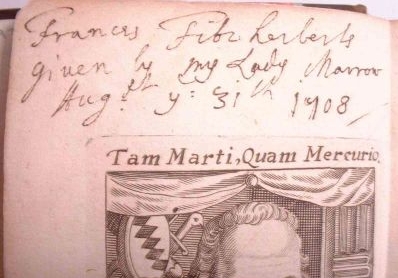 Frances Fitz herberts
given by my Lady Marrow
Augst ye 31th 1708
Tam Marti, Quam Mercurio.